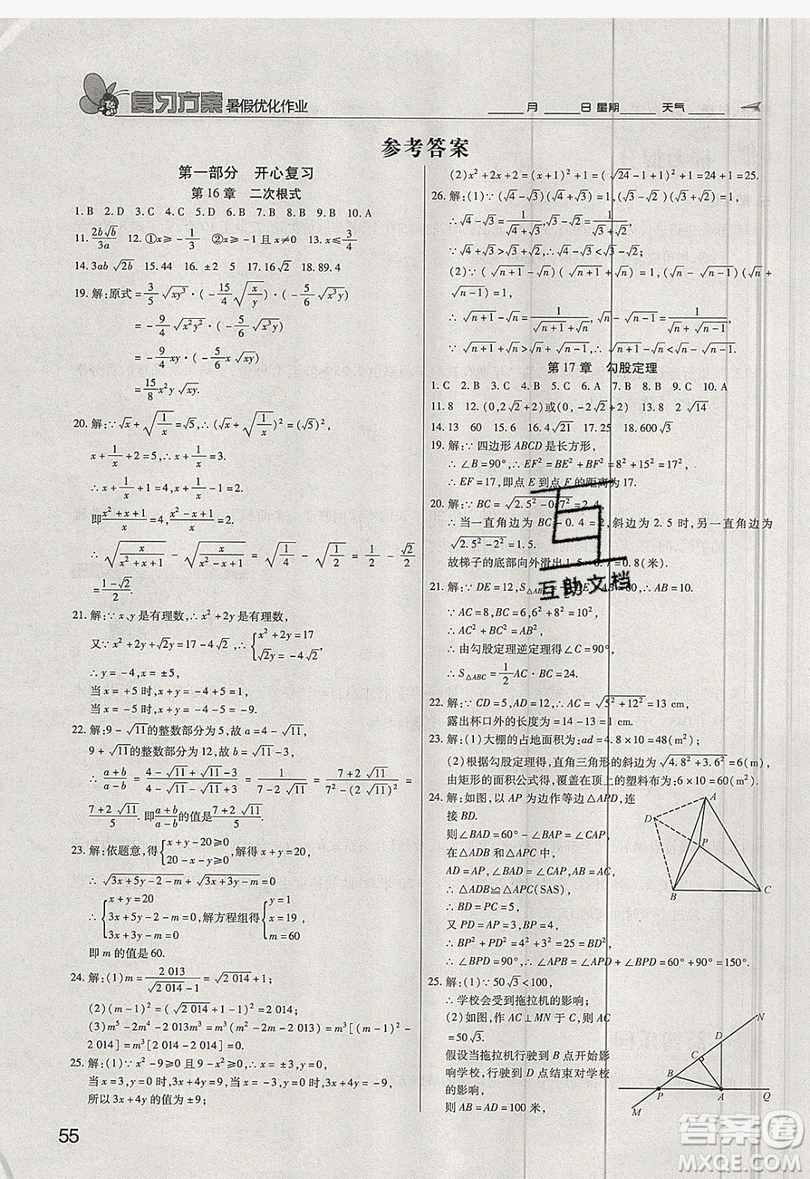 复习方案 暑假优化作业
____月____日 星期____ 天气____
参考答案
第一部分 开心复习
第16章 二次根式
1.B 2.D 3.C 4.C 5.B 6.B 7.D 8.B 9.B 10.A
11. 2b√b/3a 12.①x≥-1/3 ②x≥-1且x≠0 13.x≤3/4
14.3ab√(2b) 15.44 16.±2 5 17.2 18.89.4
19.解:原式=3/5√(xy³)·(-15/4√(x/y))·(-5/6√(x³y))
=-9/4√(x²y²)·(-5/6√(x³y))
=-9/4xy·(-5/6x√(xy))
=15/8x²y√(xy).
20.解:∵√x+√(1/x)=√5,∴(√x+√(1/x))²=5,
x+1/x+2=5,∴x+1/x=3.
∴x+1/x+1=4,x+1/x-1=2.
即(x²+x+1)/x=4,(x²-x+1)/x=2.
∴√(x/(x²+x+1))-√(x/(x²-x+1))=√(1/4)-√(1/2)=1/2-√2/2
=(1-√2)/2.
21.解:∵x、y是有理数,∴x²+2y是有理数.
又∵x²+2y+√2y=17-4√2,∴{x²+2y=17 y=-4
∴y=-4,x=±5,
当x=+5时,x+y=-4+5=1;
当x=-5时,x+y=-4-5=-9.
22.解:9-√11的整数部分为5,故a=4-√11,
9+√11的整数部分为12,故b=√11-3.
∴(a+b)/(a-b)=(4-√11+√11-3)/(4-√11-√11+3)=1/(7-2√11)=(7+2√11)/5=
(7+2√11)/5.即(a+b)/(a-b)的值是(7+2√11)/5.
23.解:依题意,得{x+y-20≥0 20-x-y≥0 解得x+y=20.
∴√(3x+5y-2-m)+√(2x+3y-m)=0.
∴{x+y=20 3x+5y-2-m=0 2x+3y-m=0,解方程组得{y=1 x=19, m=60
即m的值是60.
24.解:(1)m=2 013/(√2 014-1)=√2 014+1;
(2)(m-1)²=(√2 014+1-1)²=2 014;
(3)m⁵-2m⁴-2013m³=m³(m²-2m+1-2 014)=m³[(m-1)²-
2 014]=m³(2 014-2 014)=0.
25.解:(1)∵x²-9≥0且9-x²≥0,∴x²-9=0,∴x=±3.
当x=3时,3x+4y=9,当x=-3时,3x+4y=-9,
所以3x+4y的值为±9;
(2)x²+2x+2=(x+1)²+1=(√24-1+1)²+1=24+1=25.
26.解:(1)∵(√4-√3)(√4+√3)=1,(√3-√2)(√3+√2)=1,
∴√4-√3=1/(√4+√3),√3-√2=1/(√3+√2).
∵√4+√3>√3+√2,∴√4-√3<√3-√2.
(2)∵(√(n+1)-√n)(√(n+1)+√n)=1,(√n-√(n-1))(√n+√(n-1))=1,
∴√(n+1)-√n=1/(√(n+1)+√n),√n-√(n-1)=1/(√n+√(n-1)).
∵√(n+1)+√n>√n+√(n-1),∴√(n+1)-√n<√n-√(n-1).
第17章 勾股定理
1.C 2.B 3.A 4.C 5.C 6.B 7.A 8.C 9.C 10.A
11.8 12.(0,2√2+2)或(0,2√2-2) 13.2√14
14.13 60 15.6 16.4√21 17.25 18.600√3
19.解:∵四边形ABCD是长方形,
∴∠B=90°,∴EF²=BE²+BF²=8²+15²=17²,
∴EF=17,即点E到点F的距离为17.
20.解:∵BC=√(2.5²-0.7²)=2.4,
∴当一直角边为BC-0.4=2,斜边为2.5时,另一直角边为
√(2.5²-2²)=1.5.
故梯子的底部向外滑出1.5-0.7=0.8(米).
互助文档
21.解:∵AC=8,BC=6,6²+8²=10²,
∴AC²+BC²=AB².
∴由勾股定理逆定理得∠C=90°.
∴S△ABC=1/2AC·BC=24.
22.解:∵CD=5,AD=12,∴AC=√(5²+12²)=13 cm,
露出杯口外的长度为=14-13=1 cm.
23.解:(1)大棚的占地面积为:4.8×10=48(m²);
(2)根据勾股定理得,直角三角形的斜边为√(4.8²+3.6²)=6(m),
由矩形的面积公式得,覆盖在顶上的塑料布为:6×10=60(m²).
24.解:如图,以AP为边作等边△APD,连
接BD.
则∠BAD=60°-∠BAP=∠CAP,
在△ADB和△APC中,
AD=AP,∠BAD=∠CAP,AB=AC,
∴△ADB≌△APC(SAS),
∴BD=PC=5,
又PD=AP=3,BP=4,
∴BP²+PD²=4²+3²=25=BD²,
∴∠BPD=90°,∴∠APB=∠APD+∠BPD=60°+90°=150°.
A
D
P
B
C
25.解:(1)∵50√3<100,
∴学校会受到拖拉机的影响;
(2)如图,作AC⊥MN于点C,AC
=50√3.
假设当拖拉机行驶到B点开始影
响学校,行驶到D点结束对学校
的影响,
则AB=AD=100米,
N
D
C
B
M
P
A
Q
55
答案圈
MXQE.COM